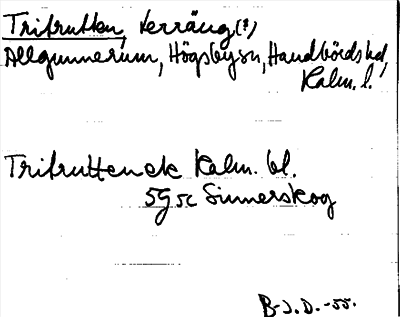 Tritrutten, terräng(?)
Allgunnerum, Högsbysn, Handbörds hd,
Kalm. l.
Tritrutten ek Kalm. bl.
5g 5c Sinnerskog
B-J.D.-55.